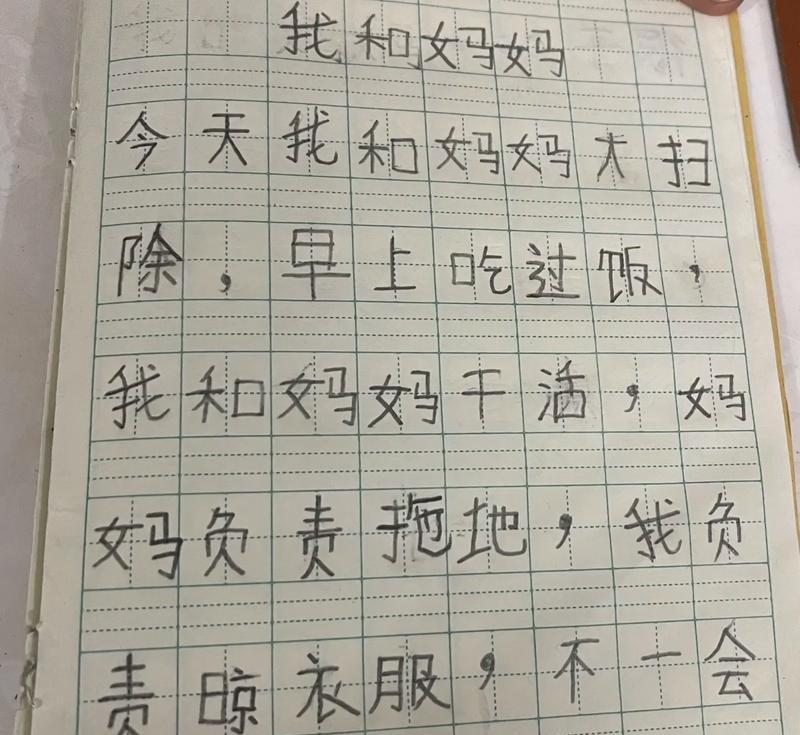 我和妈妈
今天我和妈妈大扫
除，早上吃过饭，
我和妈妈干活，妈
妈负责拖地，我负
责晾衣服，不一会